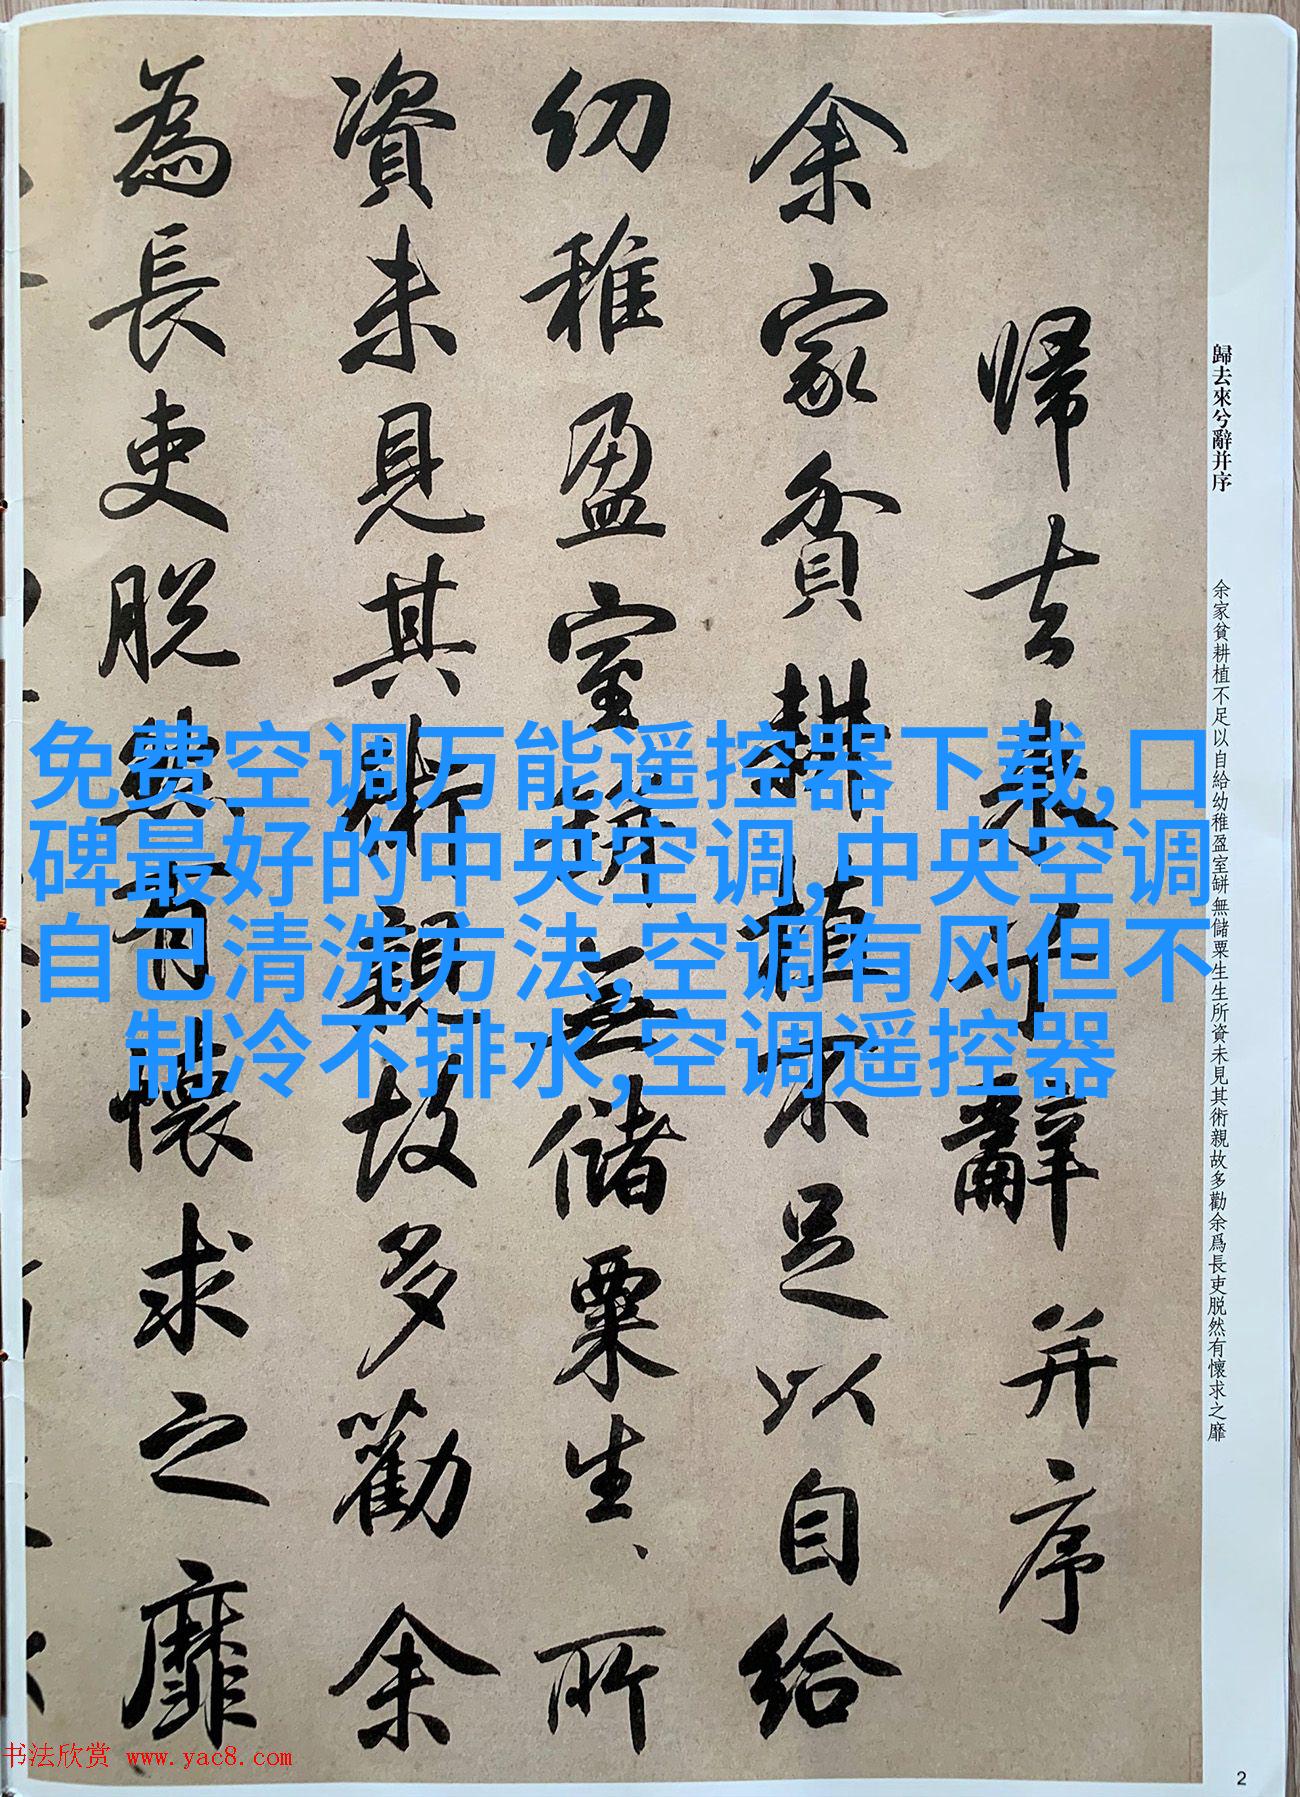 歸去來兮辭并序
余家貧耕植不足以自給幼稚盈室缾無儲粟生生所資未見其術親故多勸余爲長吏脱然有懷求之靡
帰去来兮辭并序
余家貧耕植不足以自給
幼稚盈室缾無儲粟生、所
資未見其術親故多勸余
為長吏脱然有懷求之靡
免费空调万能遥控器下载,口
碑最好的中央空调,中央空调
自己清洗方法,空调有风但不
制冷不排水,空调遥控器
书法欣赏 www.yac8.com
2